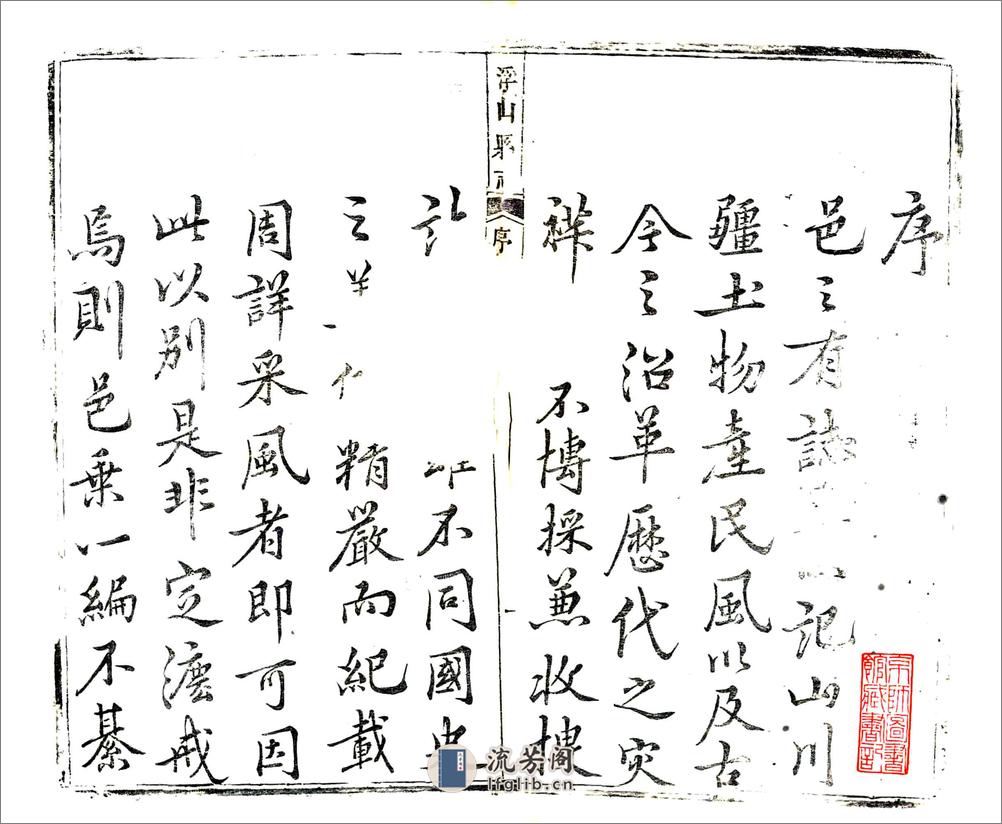 序
邑之有誌 以記山川
疆土物產民風以及古
今之沿革歷代之灾
祥 不博採兼收搜
訪 不同國史
之 精嚴而紀載
周詳采風者即可因
此以別是非定濃戒
焉則邑乗一編不綦
浮山縣
序
京師圖書館藏書記
流芳阁
lfglib.cn